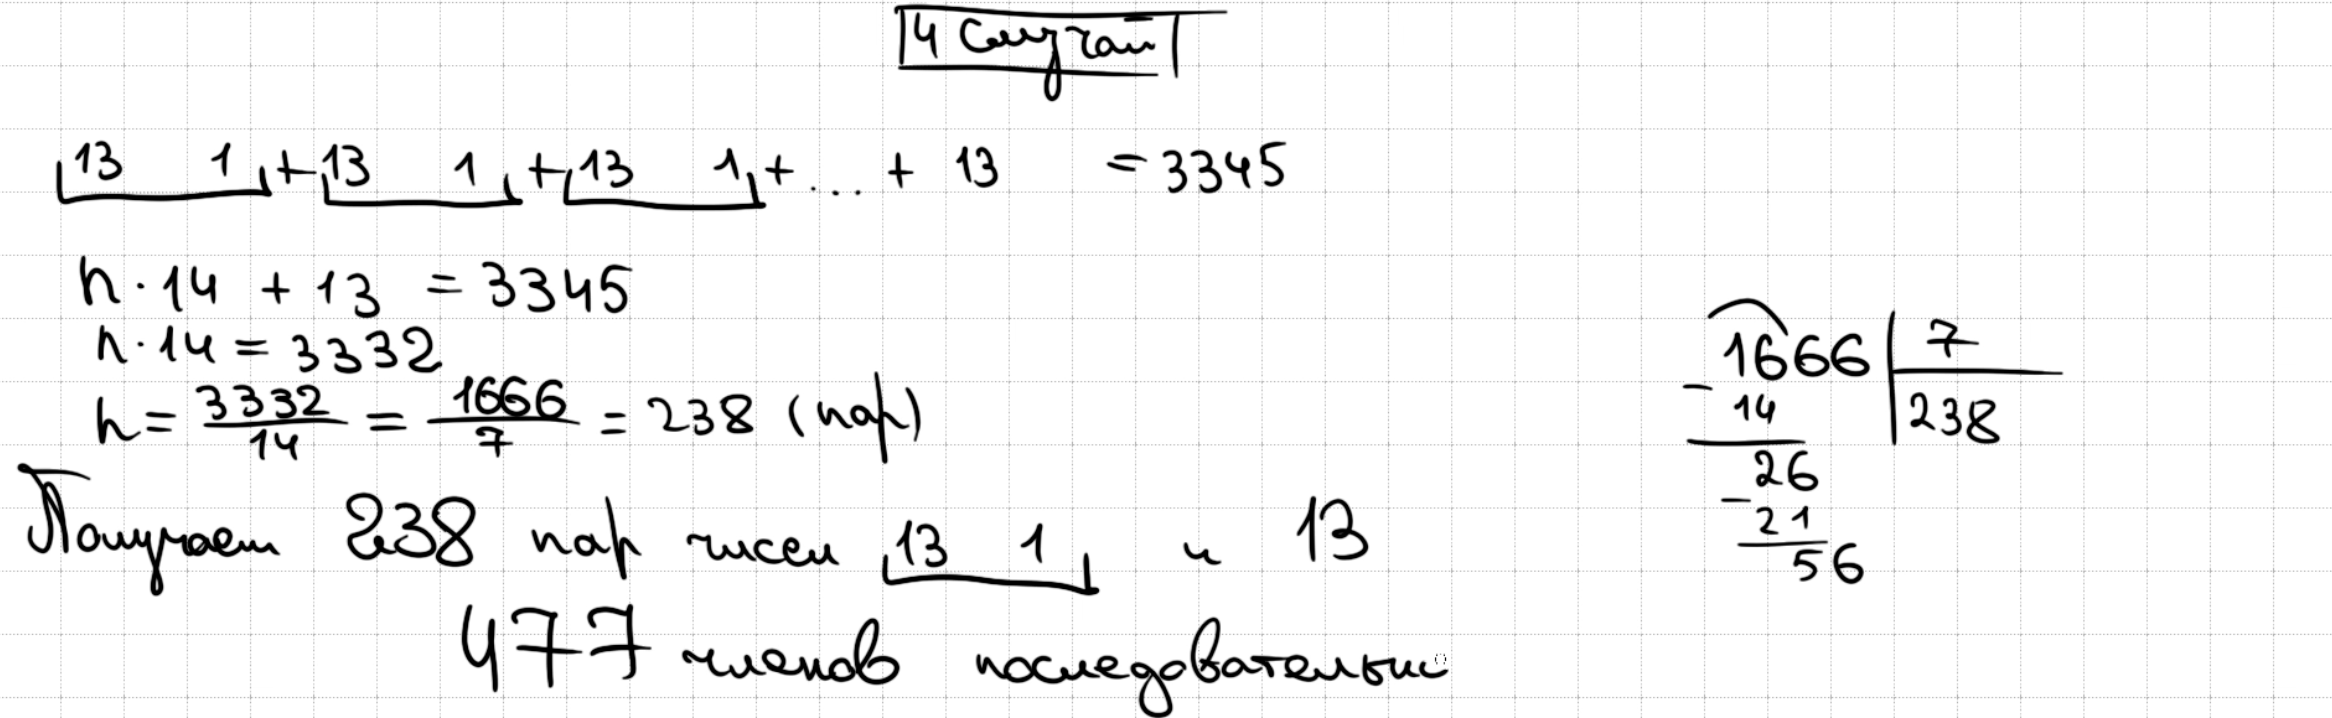 4 Случай
13 1 + 13 1 + 13 1 + ... + 13 = 3345
n · 14 + 13 = 3345
n · 14 = 3332
n = 3332/14 = 1666/7 = 238 (пар)
Получаем 238 пар чисел 13 1 и 13
477 членов последовательнос
1666 | 7
- 14 | 238
26
- 21
56